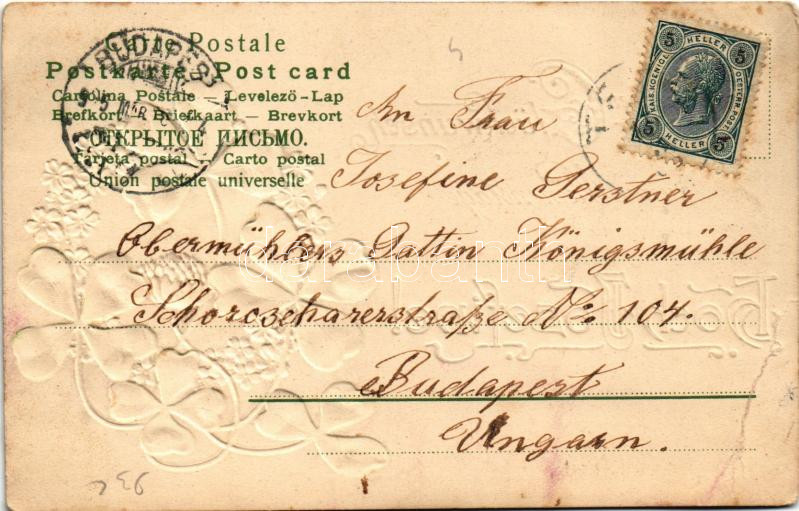 Carte Postale
Postkarte – Post card
Cartolina Postale – Levelezö-Lap
Brefkort – Briefkaart – Brevkort
ОТКРЫТОЕ ПИСЬМО.
Tarjeta postal – Carto postal
Union postale universelle
BUDAPEST
5 HELLER 5
KAIS. KOENIGL. OESTERR. POST
5 HELLER 5
An Frau
Josefine Gerstner
Obermühlers Gattin Königsmühle
Schorocscharerstraße No. 104.
Budapest
Ungarn.
darabanth